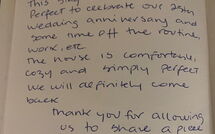 This
Perfect to celebrate our 25th
wedding anniversary and
some time off the routine,
work, etc
The house is comfortable,
cozy and simply perfect
we will definitely come
back
Thank you for allowing
us to share a piece